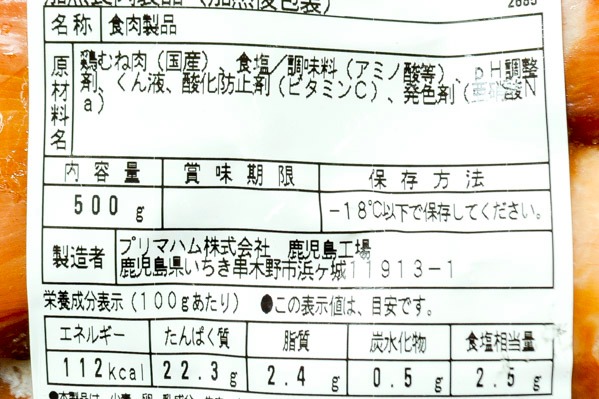 加熱食肉製品（加熱後包装）
2685
名称 食肉製品
原材料名 鶏むね肉（国産）、食塩／調味料（アミノ酸等）、ｐＨ調整
剤、くん液、酸化防止剤（ビタミンＣ）、発色剤（亜硝酸Ｎ
ａ）
内容量 賞味期限 保存方法
500g －18℃以下で保存してください。
製造者 プリマハム株式会社 鹿児島工場
鹿児島県いちき串木野市浜ヶ城１１９１３－１
栄養成分表示（100gあたり） ●この表示値は、目安です。
エネルギー たんぱく質 脂質 炭水化物 食塩相当量
112kcal 22.3g 2.4g 0.5g 2.5g